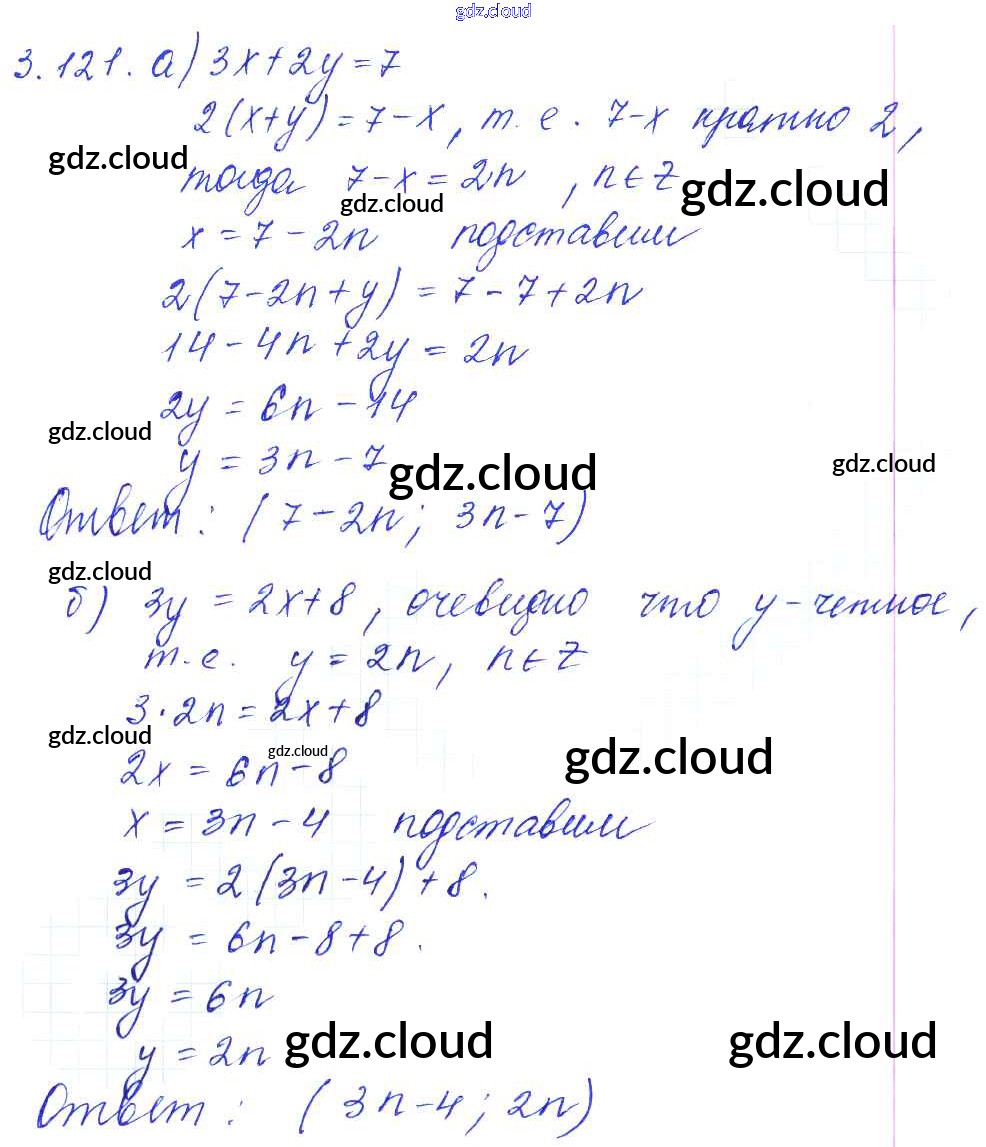 gdz.cloud
3.121. а) 3x+2y=7
2(x+y)=7-x, т. е. 7-x кратно 2,
gdz.cloud
тогда 7-x=2n, n∈Z
gdz.cloud
gdz.cloud
x=7-2n подставим
2(7-2n+y)=7-7+2n
14-4n+2y=2n
2y=6n-14
gdz.cloud
y=3n-7
gdz.cloud
gdz.cloud
Ответ: (7-2n; 3n-7)
gdz.cloud
б) 3y=2x+8, очевидно что y-четное,
т.е. y=2n, n∈Z
3·2n=2x+8
gdz.cloud
gdz.cloud
gdz.cloud
2x=6n-8
x=3n-4 подставим
3y=2(3n-4)+8.
3y=6n-8+8.
3y=6n
y=2n
gdz.cloud
gdz.cloud
Ответ: (3n-4; 2n)